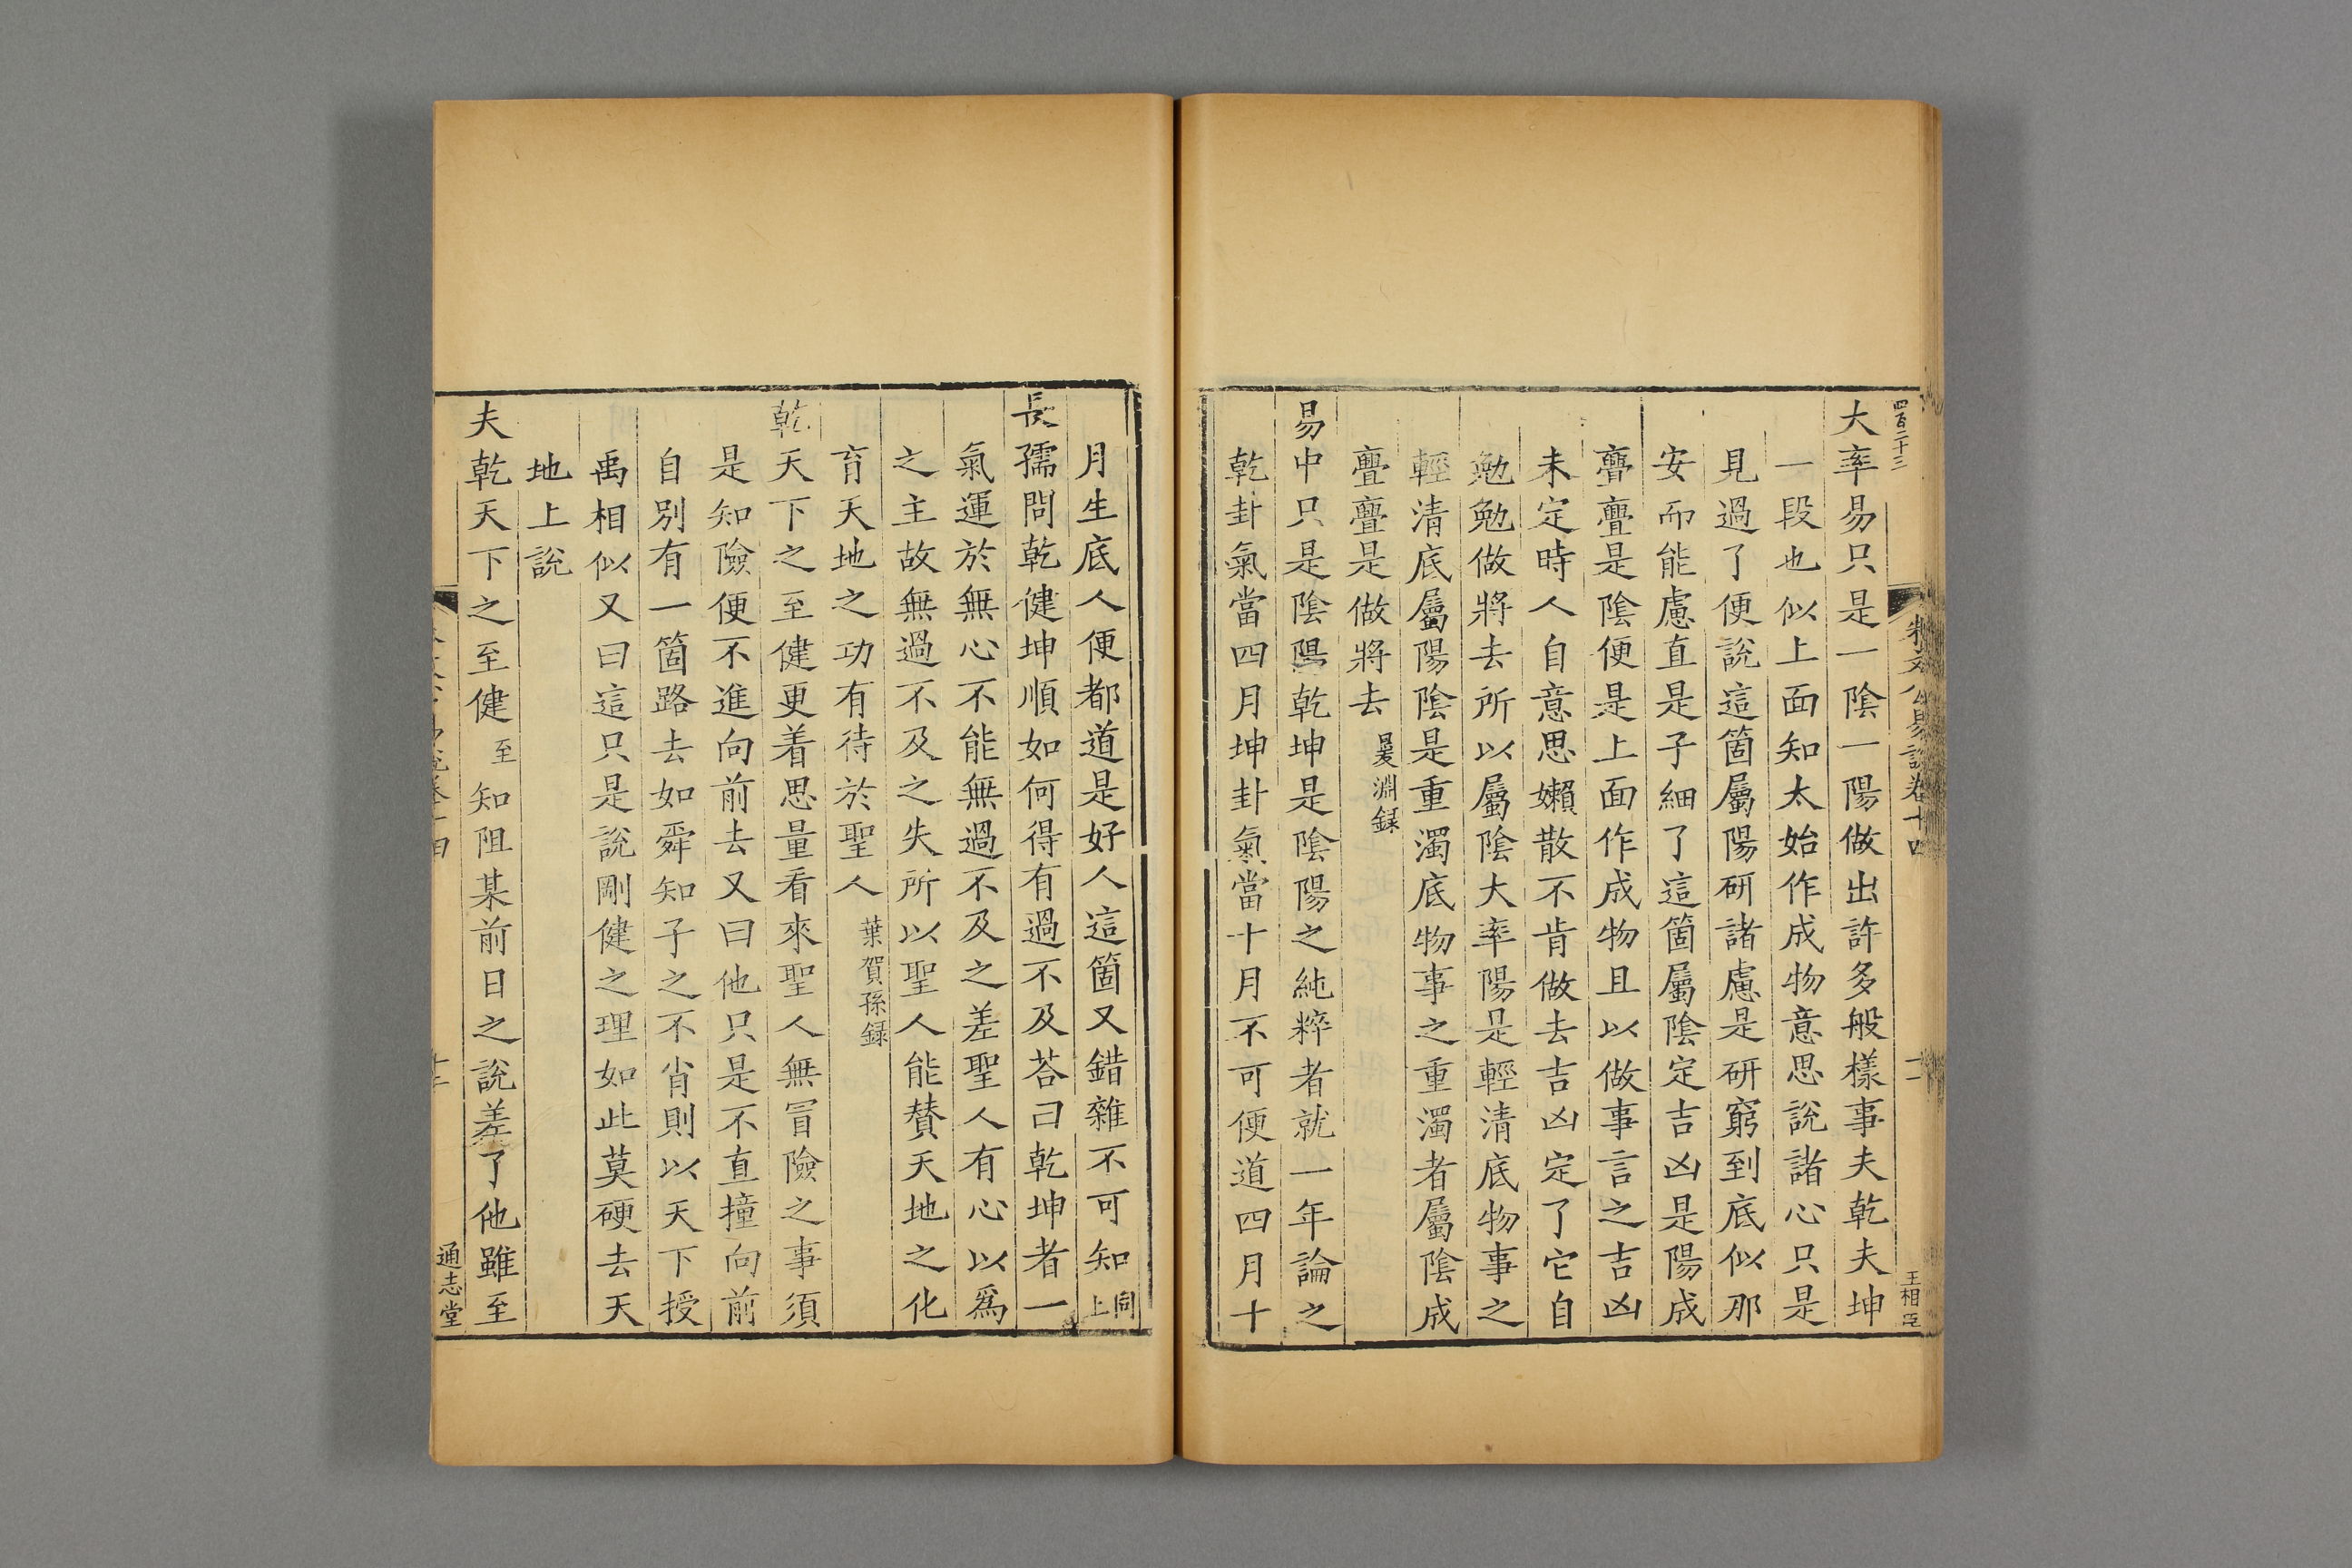 四百二十三
朱文公易說卷十四
十一
王相臣
大率易只是一陰一陽做出許多般樣事夫乾夫坤
一段也似上面知太始作成物意思說諸心只是
見過了便說這箇屬陽研諸慮是研窮到底似那
安而能慮直是子細了這箇屬陰定吉凶是陽成
亹亹是陰便是上面作成物且以做事言之吉凶
未定時人自意思嬾散不肯做去吉凶定了它自
勉勉做將去所以屬陰大率陽是輕清底物事之
輕清底屬陽陰是重濁底物事之重濁者屬陰成
亹亹是做將去㬊淵錄
易中只是陰陽乾坤是陰陽之純粹者就一年論之
乾卦氣當四月坤卦氣當十月不可便道四月十
月生底人便都道是好人這箇又錯雜不可知同上
長孺問乾健坤順如何得有過不及荅曰乾坤者一
氣運於無心不能無過不及之差聖人有心以爲
之主故無過不及之失所以聖人能賛天地之化
育天地之功有待於聖人葉賀孫録
乾天下之至健更着思量看來聖人無冒險之事須
是知險便不進向前去又曰他只是不直撞向前
自別有一箇路去如舜知子之不肖則以天下授
禹相似又曰這只是說剛健之理如此莫硬去天
地上說
夫乾天下之至健至知阻某前日之說差了他雖至
通志堂